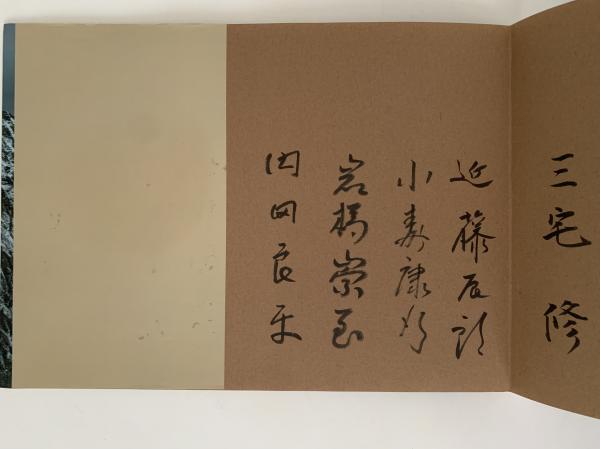 三宅 修
近藤辰郎
小森康行
岩橋崇至
内田良平